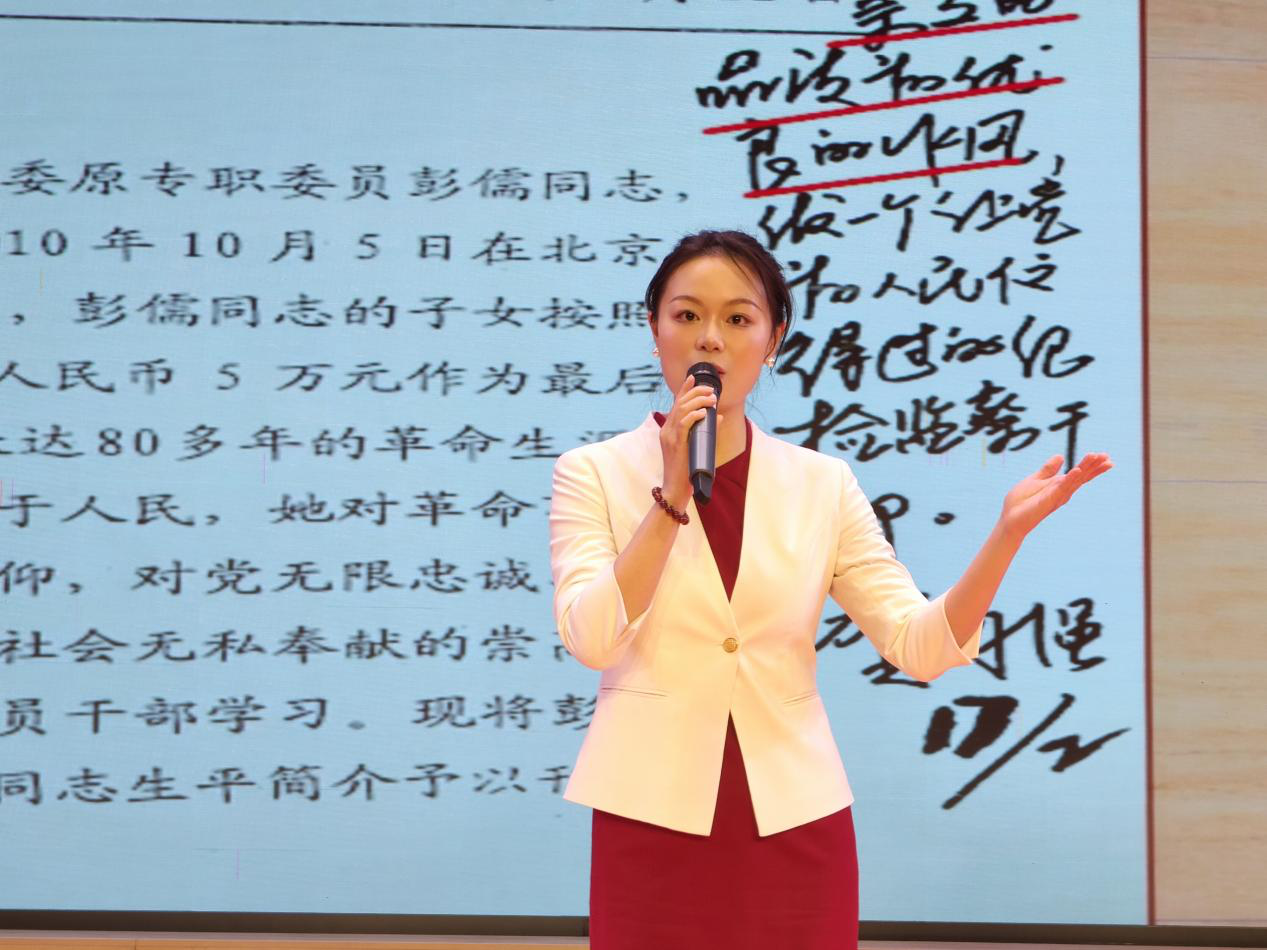 委原专职委员彭儒同志，
10 年 10 月 5 日在北京
，彭儒同志的子女按照
人民币 5 万元作为最后
达80多年的革命生涯
于人民，她对革命
仰，对党无限忠诚
社会无私奉献的崇高
员干部学习。现将彭
同志生平简介予以刊
品德和优
良的作风，
做一个让党
和人民信
得过的纪
检监察干
部。
17/2